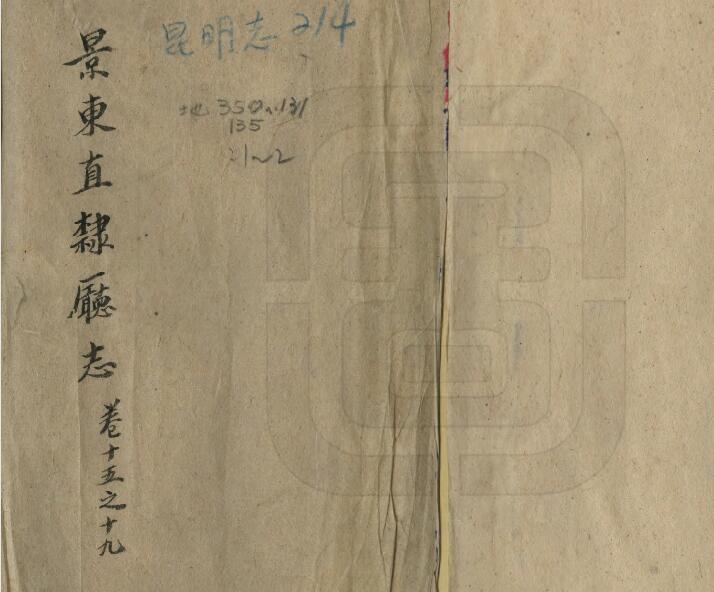 景東直隸廳志
卷十五之十九
昆明志 214
地 350.131
135
:1~2